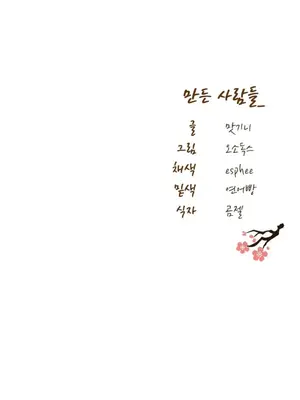 만든 사람들_
글 맛기니
그림 오소독스
채색 esphee
밑색 연어빵
식자 곰젤